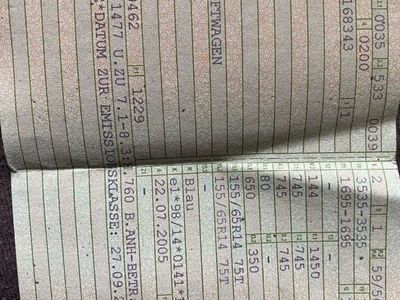 0035 533 0039 2 1 59/5
0200 3535-3535
168343 1 1695-1695
144 1450
745 745
745 745
80 -
650 350
155/65R14 75T
FTWAGEN 155/65R14 75T
-
Blau
e1*98/14*0141*1
22.07.2005
0462 1229 -
1477 U.ZU 7.1-8.3: 760 B.ANH-BETR.
*DATUM ZUR EMISSIONSKLASSE: 27.09.2